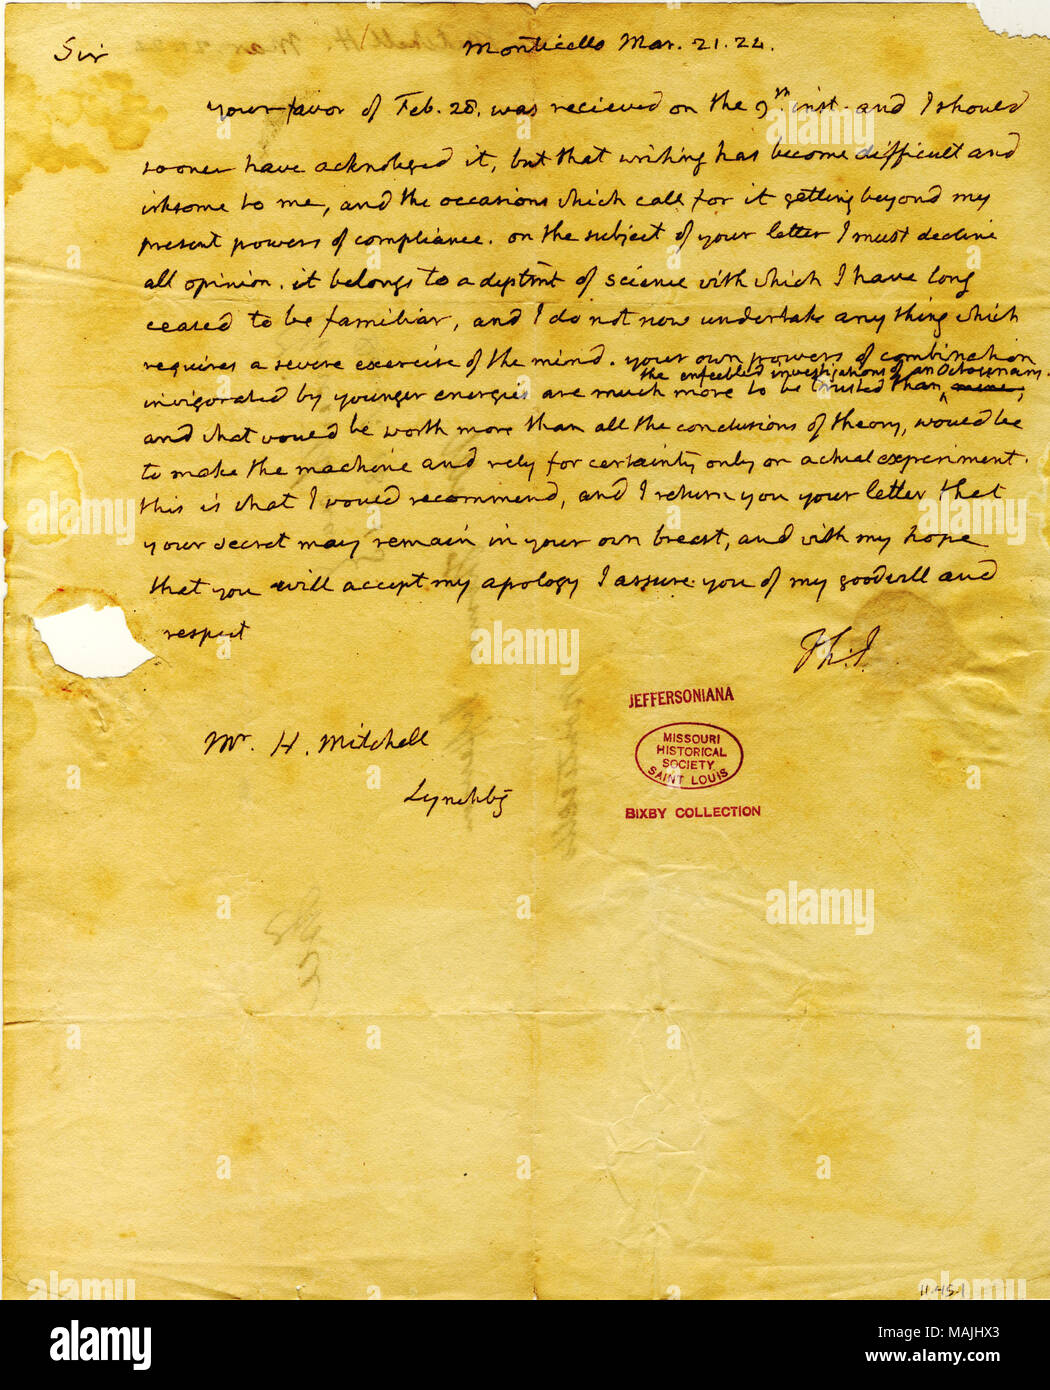 Sir Monticello Mar. 21. 24.
your favor of Feb. 28. was recieved on the 9th inst. and I should
sooner have acknoleged it, but that writing has become difficult and
irksome to me, and the occasions which call for it getting beyond my
present powers of compliance. on the subject of your letter I must decline
all opinion. it belongs to a deptmt of science with which I have long
ceased to be familiar, and I do not now undertake any thing which
requires a severe exercise of the mind. your own powers of combination
the enfeebled investigations of an Octogenary.
invigorated by younger energies are much more to be trusted than ^ mine,
and what would be worth more than all the conclusions of theory, would be
to make the machine and rely for certainty only on actual experiment.
this is what I would recommend, and I return you your letter that
your secret may remain in your own breast, and with my hope
that you will accept my apology I assure you of my goodwill and
respect
Th: J.
JEFFERSONIANA
MISSOURI
HISTORICAL
SOCIETY
SAINT LOUIS
BIXBY COLLECTION
Mr. H. Mitchell
Lynchbg
11.45.1
alamy
Image ID: MAJHX3
www.alamy.com